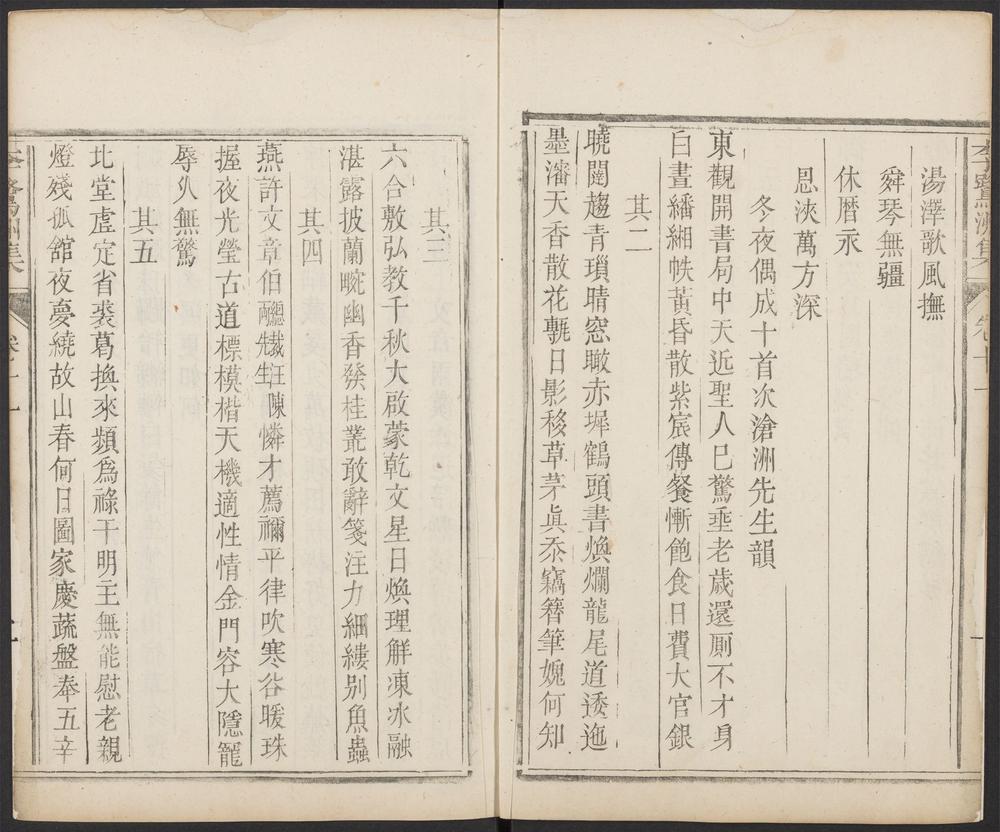 湯澤歌風撫
舜琴無疆
休曆永
恩浹萬方深
冬夜偶成十首次滄洲先生韻
東觀開書局中天近聖人已驚垂老歲還厠不才身
白晝繙緗帙黃昏散紫宸傳餐慚飽食日費大官銀
其二
曉闥趨青瑣晴窓瞰赤墀鶴頭書煥爛龍尾道逶迤
墨瀋天香散花甎日影移草茅眞忝竊簪筆媿何知
其三
六合敷弘教千秋大啟蒙乾文星日煥理解凍冰融
湛露披蘭畹幽香發桂叢敢辭箋注力細縷別魚蟲
其四
燕許文章伯先生憐才薦禰平律吹寒谷暖珠
握夜光瑩古道標模楷天機適性情金門容大隱寵
辱久無驚
其五
北堂虛定省裘葛換來頻爲祿干明主無能慰老親
燈殘孤舘夜夢繞故山春何日圖家慶蔬盤奉五辛